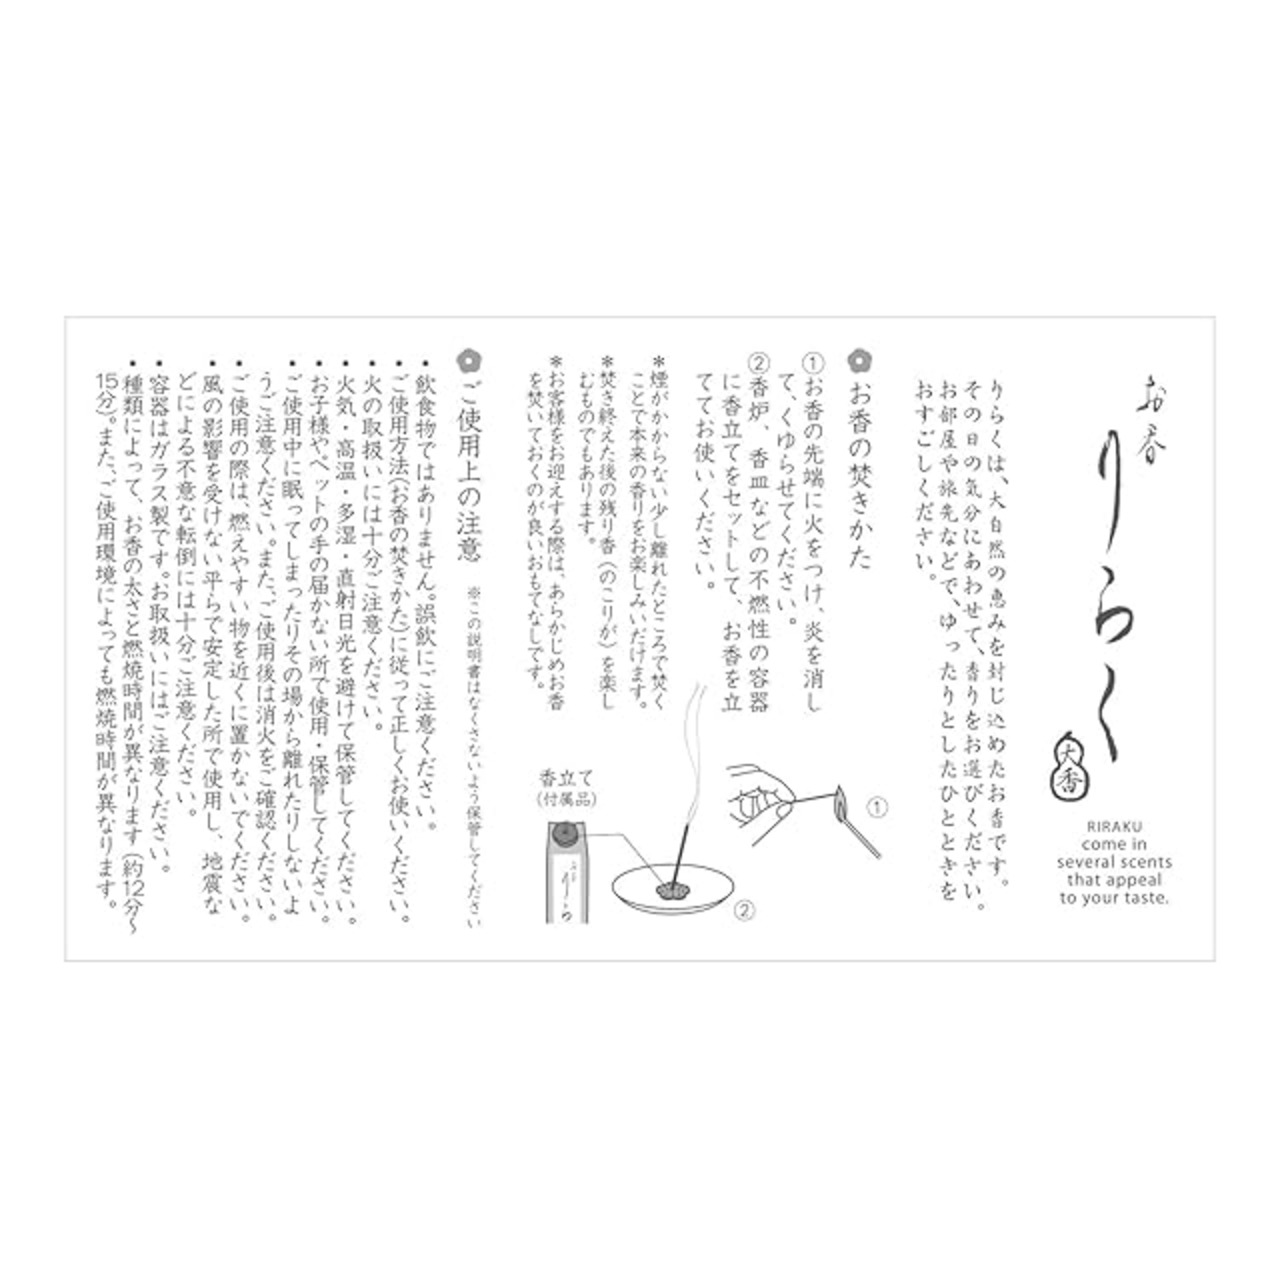 お香
りらく
大香
RIRAKU
come in
several scents
that appeal
to your taste.
りらくは、大自然の恵みを封じ込めたお香です。
その日の気分にあわせて、香りをお選びください。
お部屋や旅先などで、ゆったりとしたひとときを
おすごしください。
お香の焚きかた
①お香の先端に火をつけ、炎を消し
て、くゆらせてください。
②香炉、香皿などの不燃性の容器
に香立てをセットして、お香を立
ててお使いください。
＊煙がかからない少し離れたところで焚く
ことで本来の香りをお楽しみいだけます。
＊焚き終えた後の残り香（のこりが）を楽し
むものでもあります。
＊お客様をお迎えする際は、あらかじめお香
を焚いておくのが良いおもてなしです。
①
②
香立て
(付属品)
お香
りらく
ご使用上の注意
※この説明書はなくさないよう保管してください
・飲食物ではありません。誤飲にご注意ください。
・ご使用方法(お香の焚きかた)に従って正しくお使いください。
・火の取扱いには十分ご注意ください。
・火気・高温・多湿・直射日光を避けて保管してください。
・お子様や、ペットの手の届かない所で使用・保管してください。
・ご使用中に眠ってしまったりその場から離れたりしないよ
うご注意ください。また、ご使用後は消火をご確認ください。
・ご使用の際は、燃えやすい物を近くに置かないでください。
・風の影響を受けない平らで安定した所で使用し、地震な
どによる不意な転倒には十分ご注意ください。
・容器はガラス製です。お取扱いにはご注意ください。
・種類によって、お香の太さと燃焼時間が異なります（約12分〜
15分）。また、ご使用環境によっても燃焼時間が異なります。